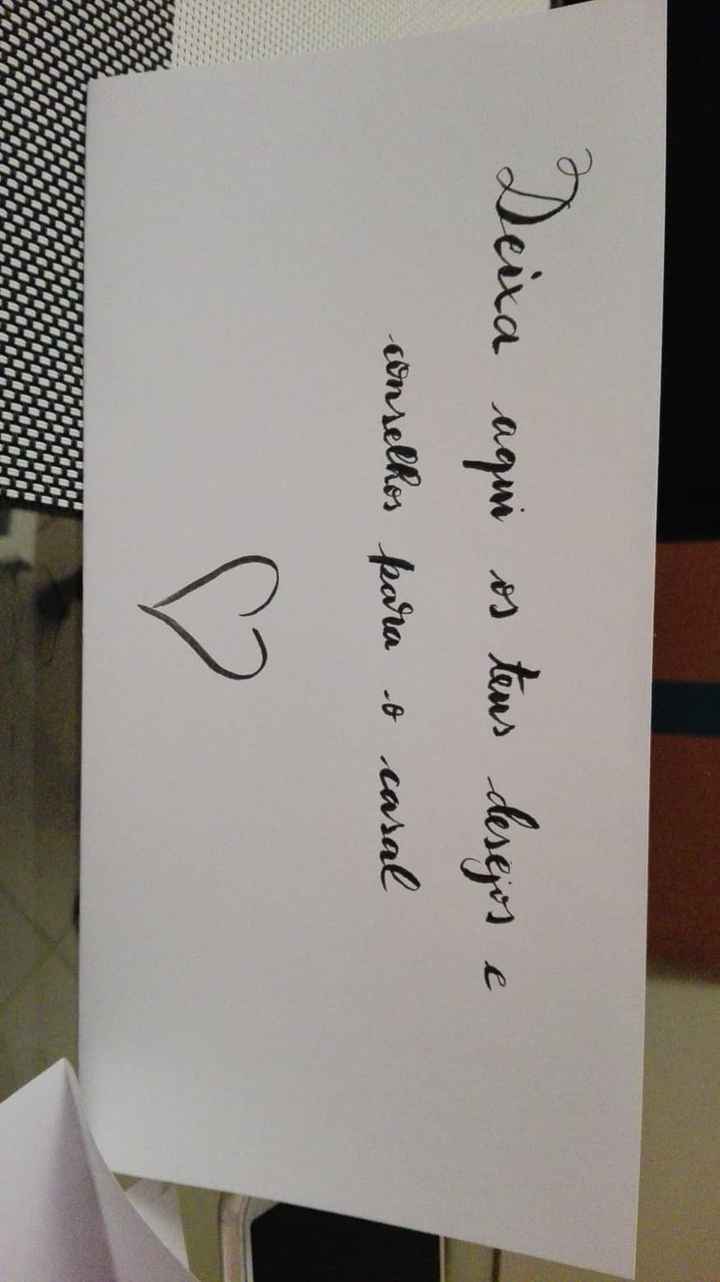 Deixa aqui os teus desejos e
conselhos para o casal